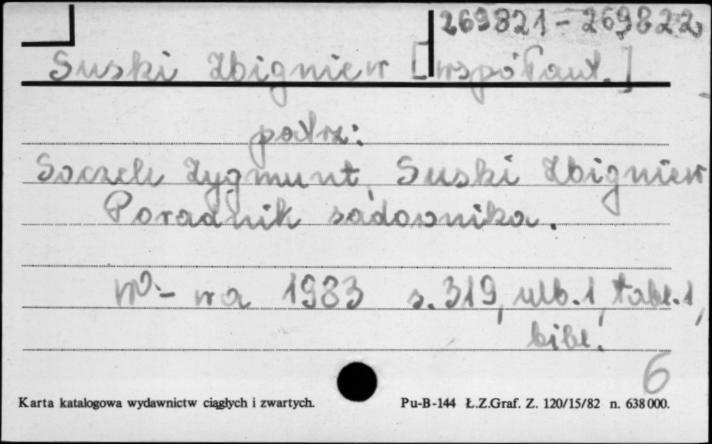 269821-269822
Suski Zbigniew [współaut.]
patrz:
Soczek Zygmunt, Suski Zbigniew
Poradnik sadownika.
W-wa 1983 s. 319, ulb. 1, tabl. 1,
bibl.
6
Karta katalogowa wydawnictw ciągłych i zwartych.
Pu-B-144 Ł.Z.Graf. Z. 120/15/82 n. 638000.